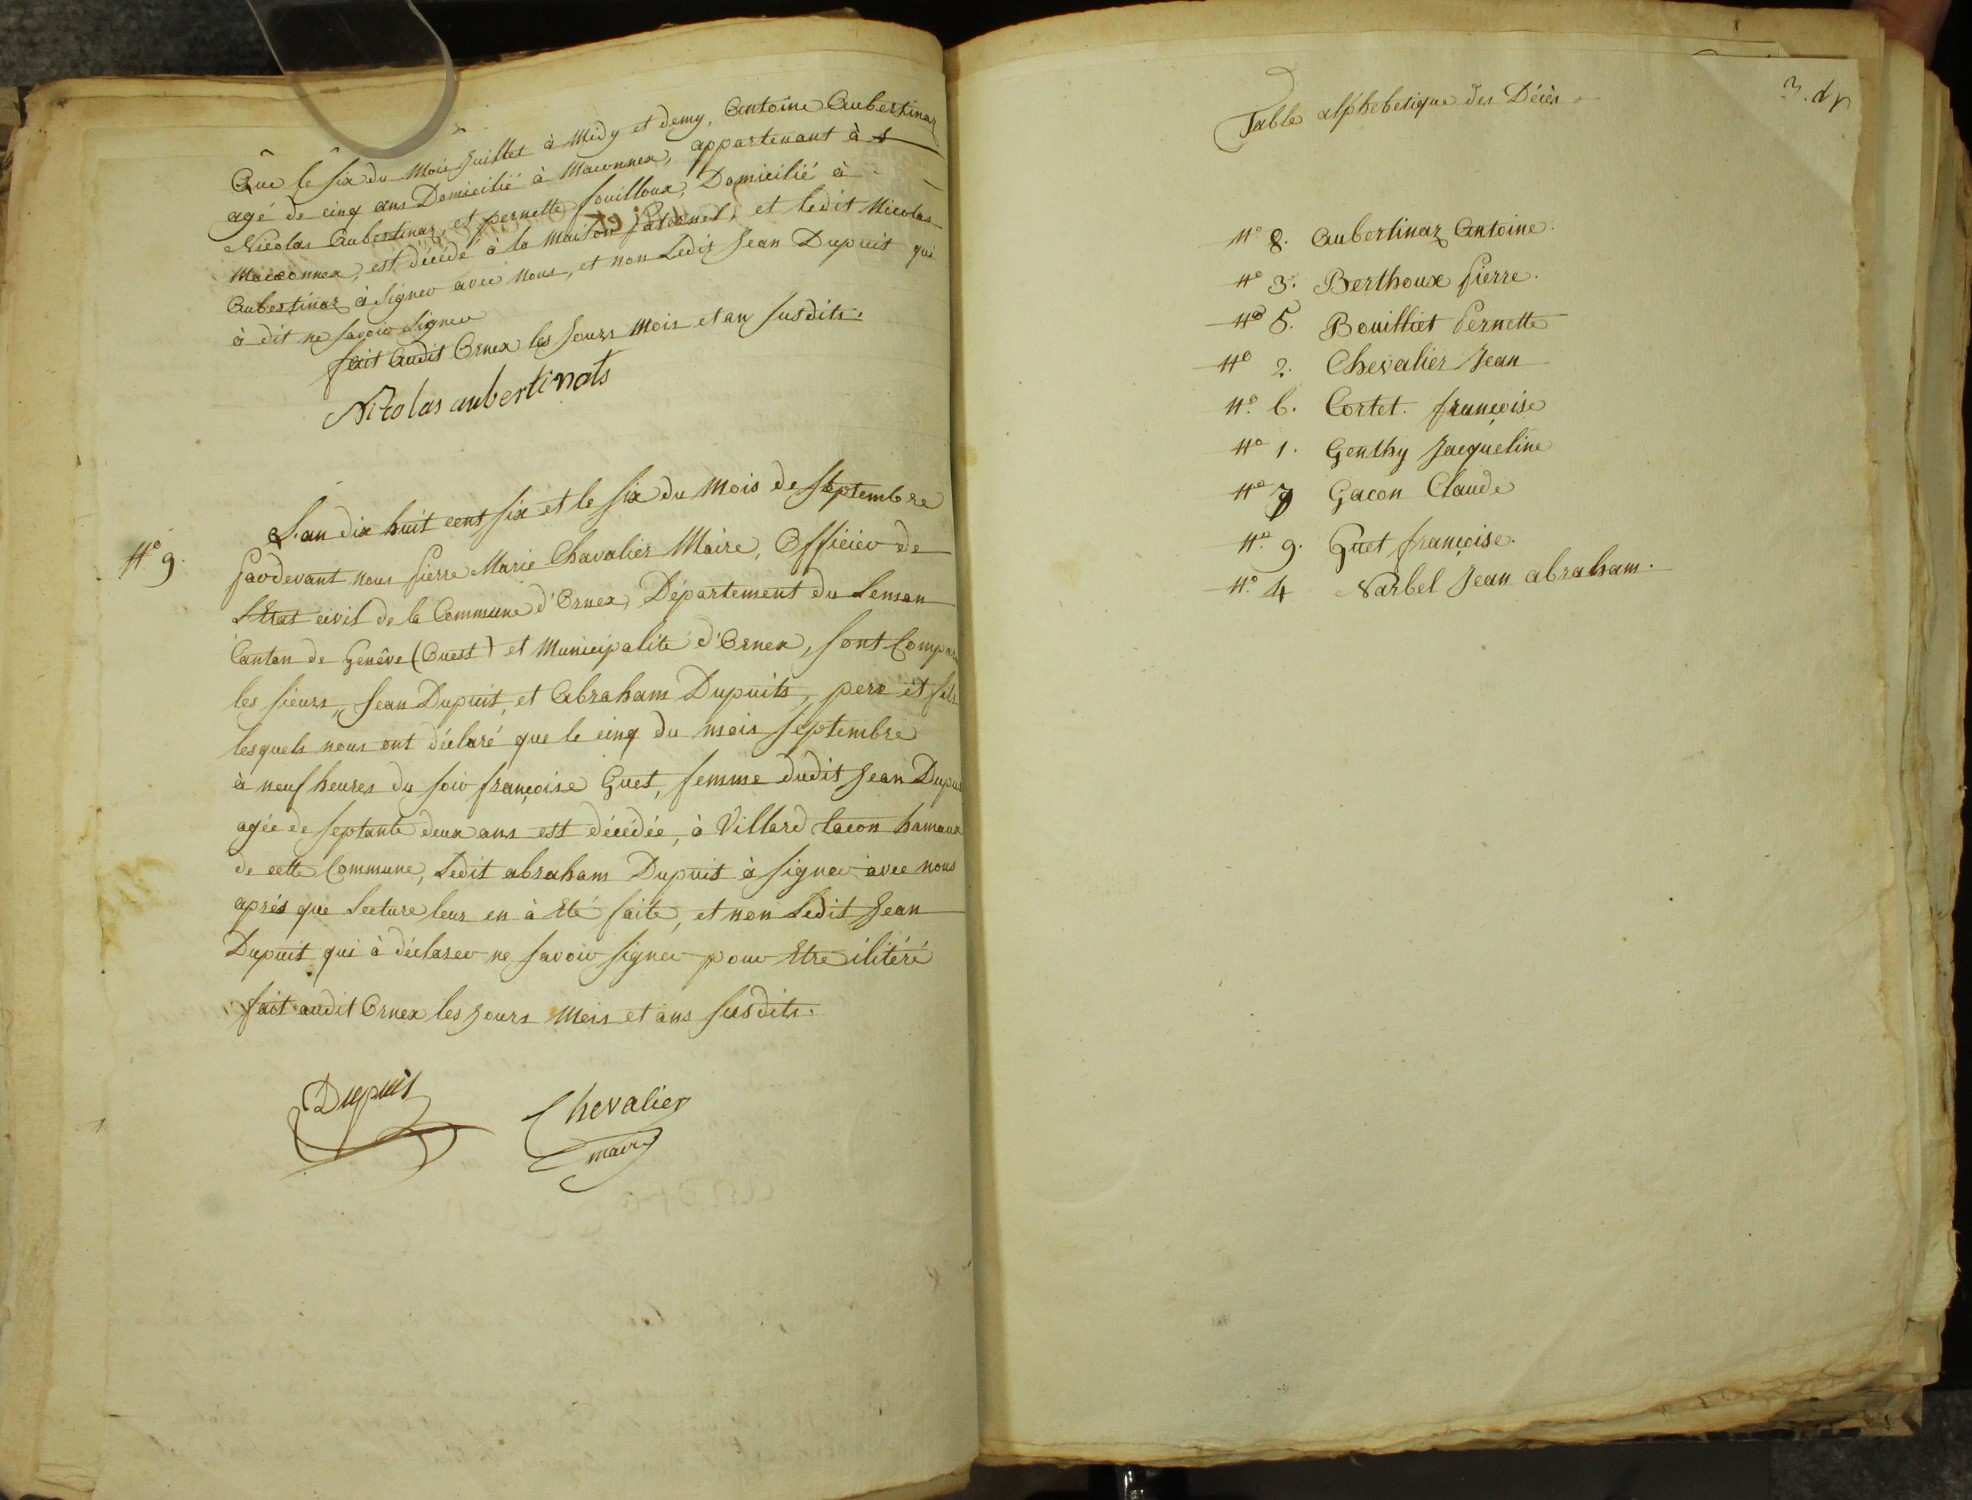 Que le six du mois Juillet à Midy et demy, Antoine Aubertinaz
agé de cinq ans Domicilié à Maconnex, appartenant à
Nicolas Aubertinaz, et pernette fouilloux, Domicilié à
Maconnex, est décédé à la maison paternel, et ledit Nicolas
Aubertinaz à signer avec nous, et non Ledit Jean Dupuit qui
à dit ne savoir signer
fait audit Ornex les Jours mois et an susdits.
Nicolas aubertinats
N° 9.
L'an dix huit cent six et le six du mois de septembre
pardevant nous pierre Marie Chavalier Maire, Officier de
L'Etat civil de la Commune d'Ornex, Département du Leman
Canton de Genêve (Ouest) et Municipalité d'Ornex, sont Compar
les sieurs, Jean Dupuit, et Abraham Dupuits, pere et fils
lesquels nous ont déclaré que le cinq du mois septembre
à neuf heures du soir françoise Guet, femme dudit Jean Dupuit
agée de septante deux ans est décédée, à Villard tacon hamaux
de cette Commune, Ledit abraham Dupuit à signer avec nous
après que Lecture leur en à Eté faite, et non Ledit Jean
Dupuit qui à déclarer ne savoir signer pour Etre ilitéré
fait audit Ornex les Jours Mois et ans susdits.
Dupuis
Chevalier
maire
Table alphebetique des Décès
N° 8. Aubertinaz Antoine.
N° 3. Berthoux pierre.
N° 5. Bouilliet Pernette
N° 2. Chevalier Jean
N° 6. Cortet. françoise
N° 1. Genthy Jacqueline
N° 7 Gacon Claude
N° 9. Guet françoise.
N° 4 Narbel Jean abraham.